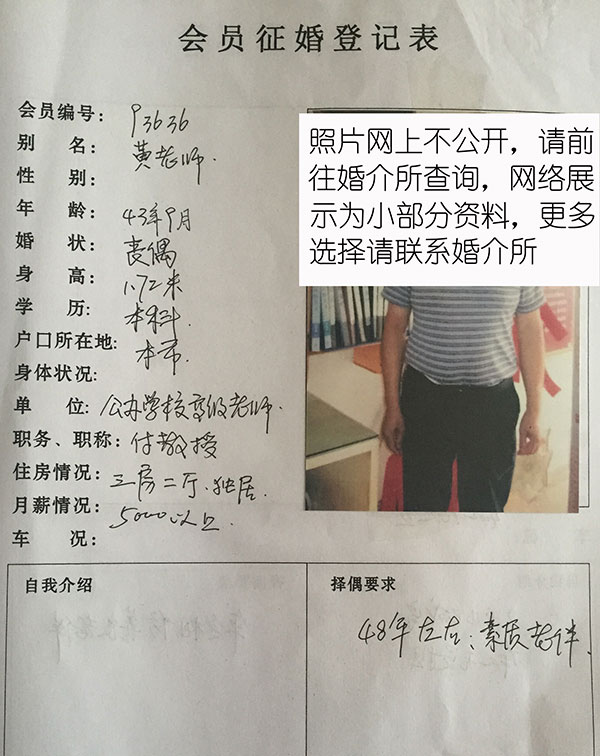 会员征婚登记表
会员编号: 93636
别 名: 黄老师.
性 别:
年 龄: 43年9月
婚 状: 丧偶
身 高: 1.72米
学 历: 本科.
户口所在地: 本市.
身体状况:
单 位: 公办学校高级老师.
职务、职称: 付教授
住房情况: 三房二厅.独居.
月薪情况: 5000以上.
车 况:
照片网上不公开，请前
往婚介所查询，网络展
示为小部分资料，更多
选择请联系婚介所
自我介绍
择偶要求
48年左右、素质老伴.